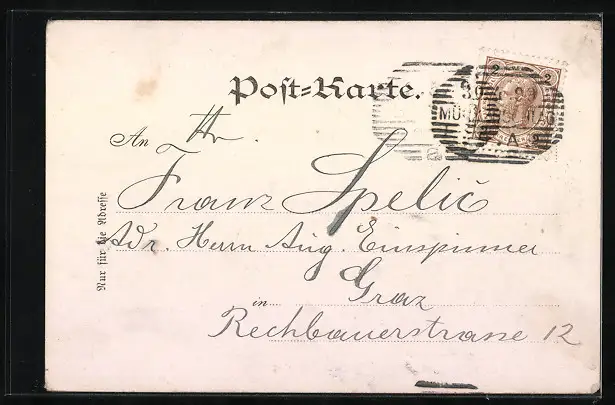 Post-Karte.
An Hr.
Franz Spelič
Adr. Herrn Aug. Einspinner
in Graz
Rechbauerstrasse 12
Nur für die Adresse
2 2